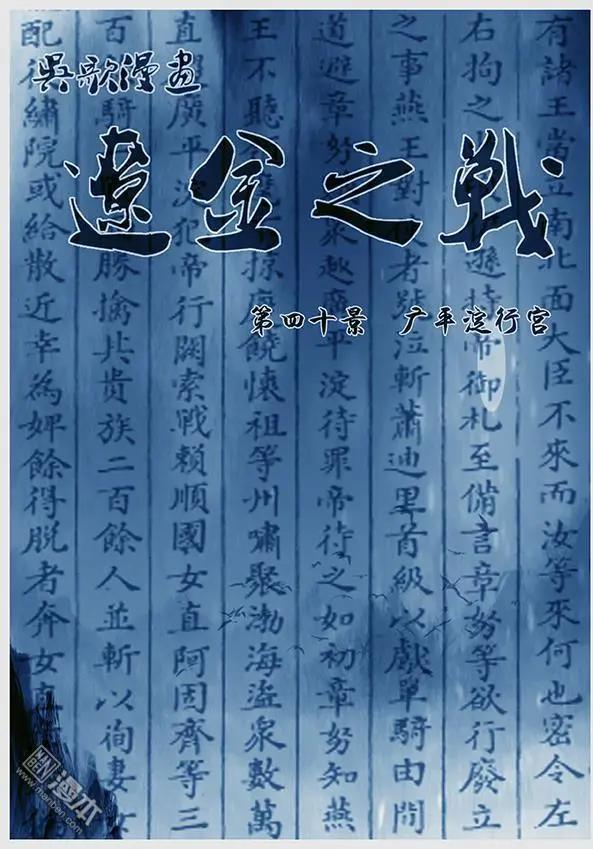 吳歌漫畫
遼金之戰
第四十景 广平淀行宫
有諸王當立南北面大臣不來而汝等來何也密令左
右拘之遜持帝御札至備言章努等欲行廢立
之事燕王對使者號泣斬蕭迪里首級以獻單騎由間
道避章努衆趨廣平淀待罪帝待之如初章努知燕
王不聽掠慶饒懷祖等州嘯聚渤海盜衆數萬
直趨廣平淀犯帝行闕索戰賴順國女直阿固齊等三
百騎勝擒其貴族二百餘人並斬以徇妻女
配繡院或給散近幸為婢餘得脫者奔女直
MAN BEN 漫本
www.manben.com